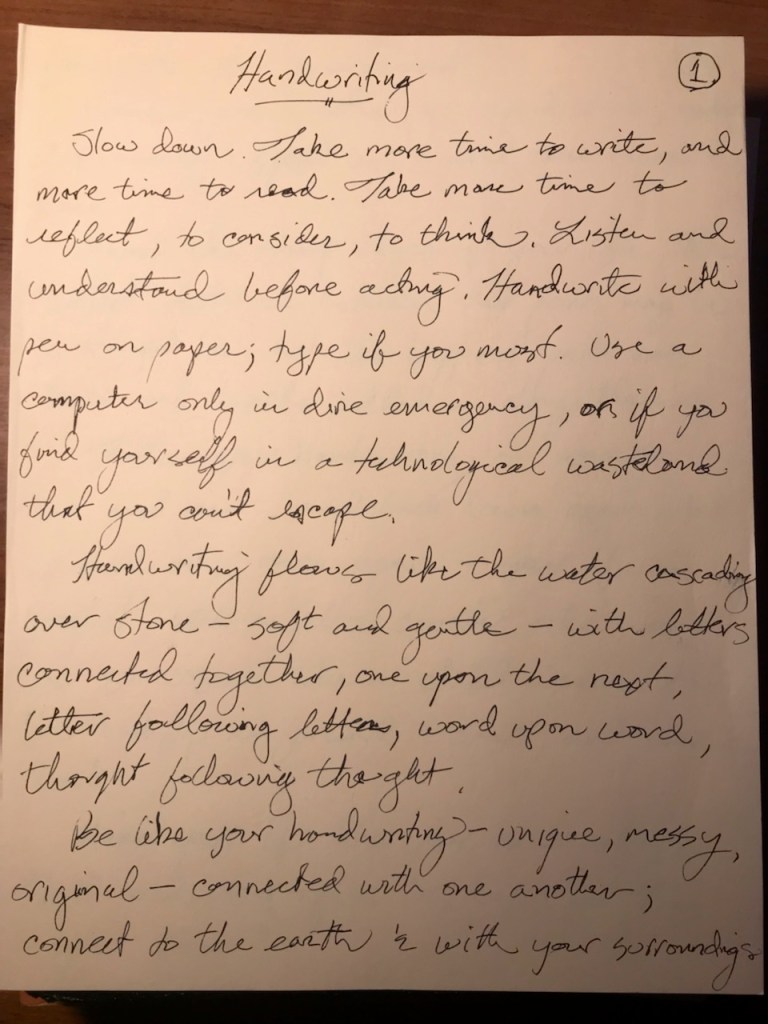 Handwriting
1
Slow down. Take more time to write, and
more time to read. Take more time to
reflect, to consider, to think. Listen and
understand before acting. Handwrite with
pen on paper; type if you must. Use a
computer only in dire emergency, or if you
find yourself in a technological wasteland
that you can't escape.
Handwriting flows like the water cascading
over stone – soft and gentle – with letters
connected together, one upon the next,
letter following letter, word upon word,
thought following thought.
Be like your handwriting – unique, messy,
original – connected with one another;
connect to the earth & with your surroundings